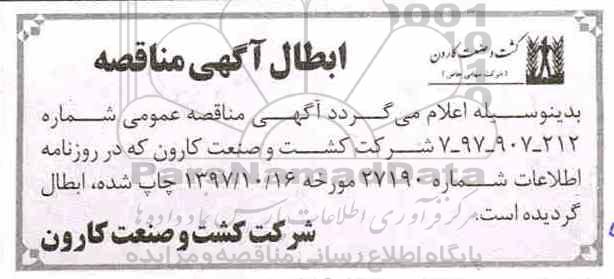 کشت و صنعت کارون
(شرکت سهامی خاص)
ابطال آگهی مناقصه
بدینوسیله اعلام می‌گردد آگهی مناقصه عمومی شماره
۲۱۲-۹۰۷-۹۷-۷ شرکت کشت و صنعت کارون که در روزنامه
اطلاعات شماره ۲۷۱۹۰ مورخه ۱۳۹۷/۱۰/۱۶ چاپ شده، ابطال
گردیده است.
شرکت کشت و صنعت کارون
مرکز فرآوری اطلاعات پارس نماد داده‌ها
پایگاه اطلاع رسانی مناقصه و مزایده